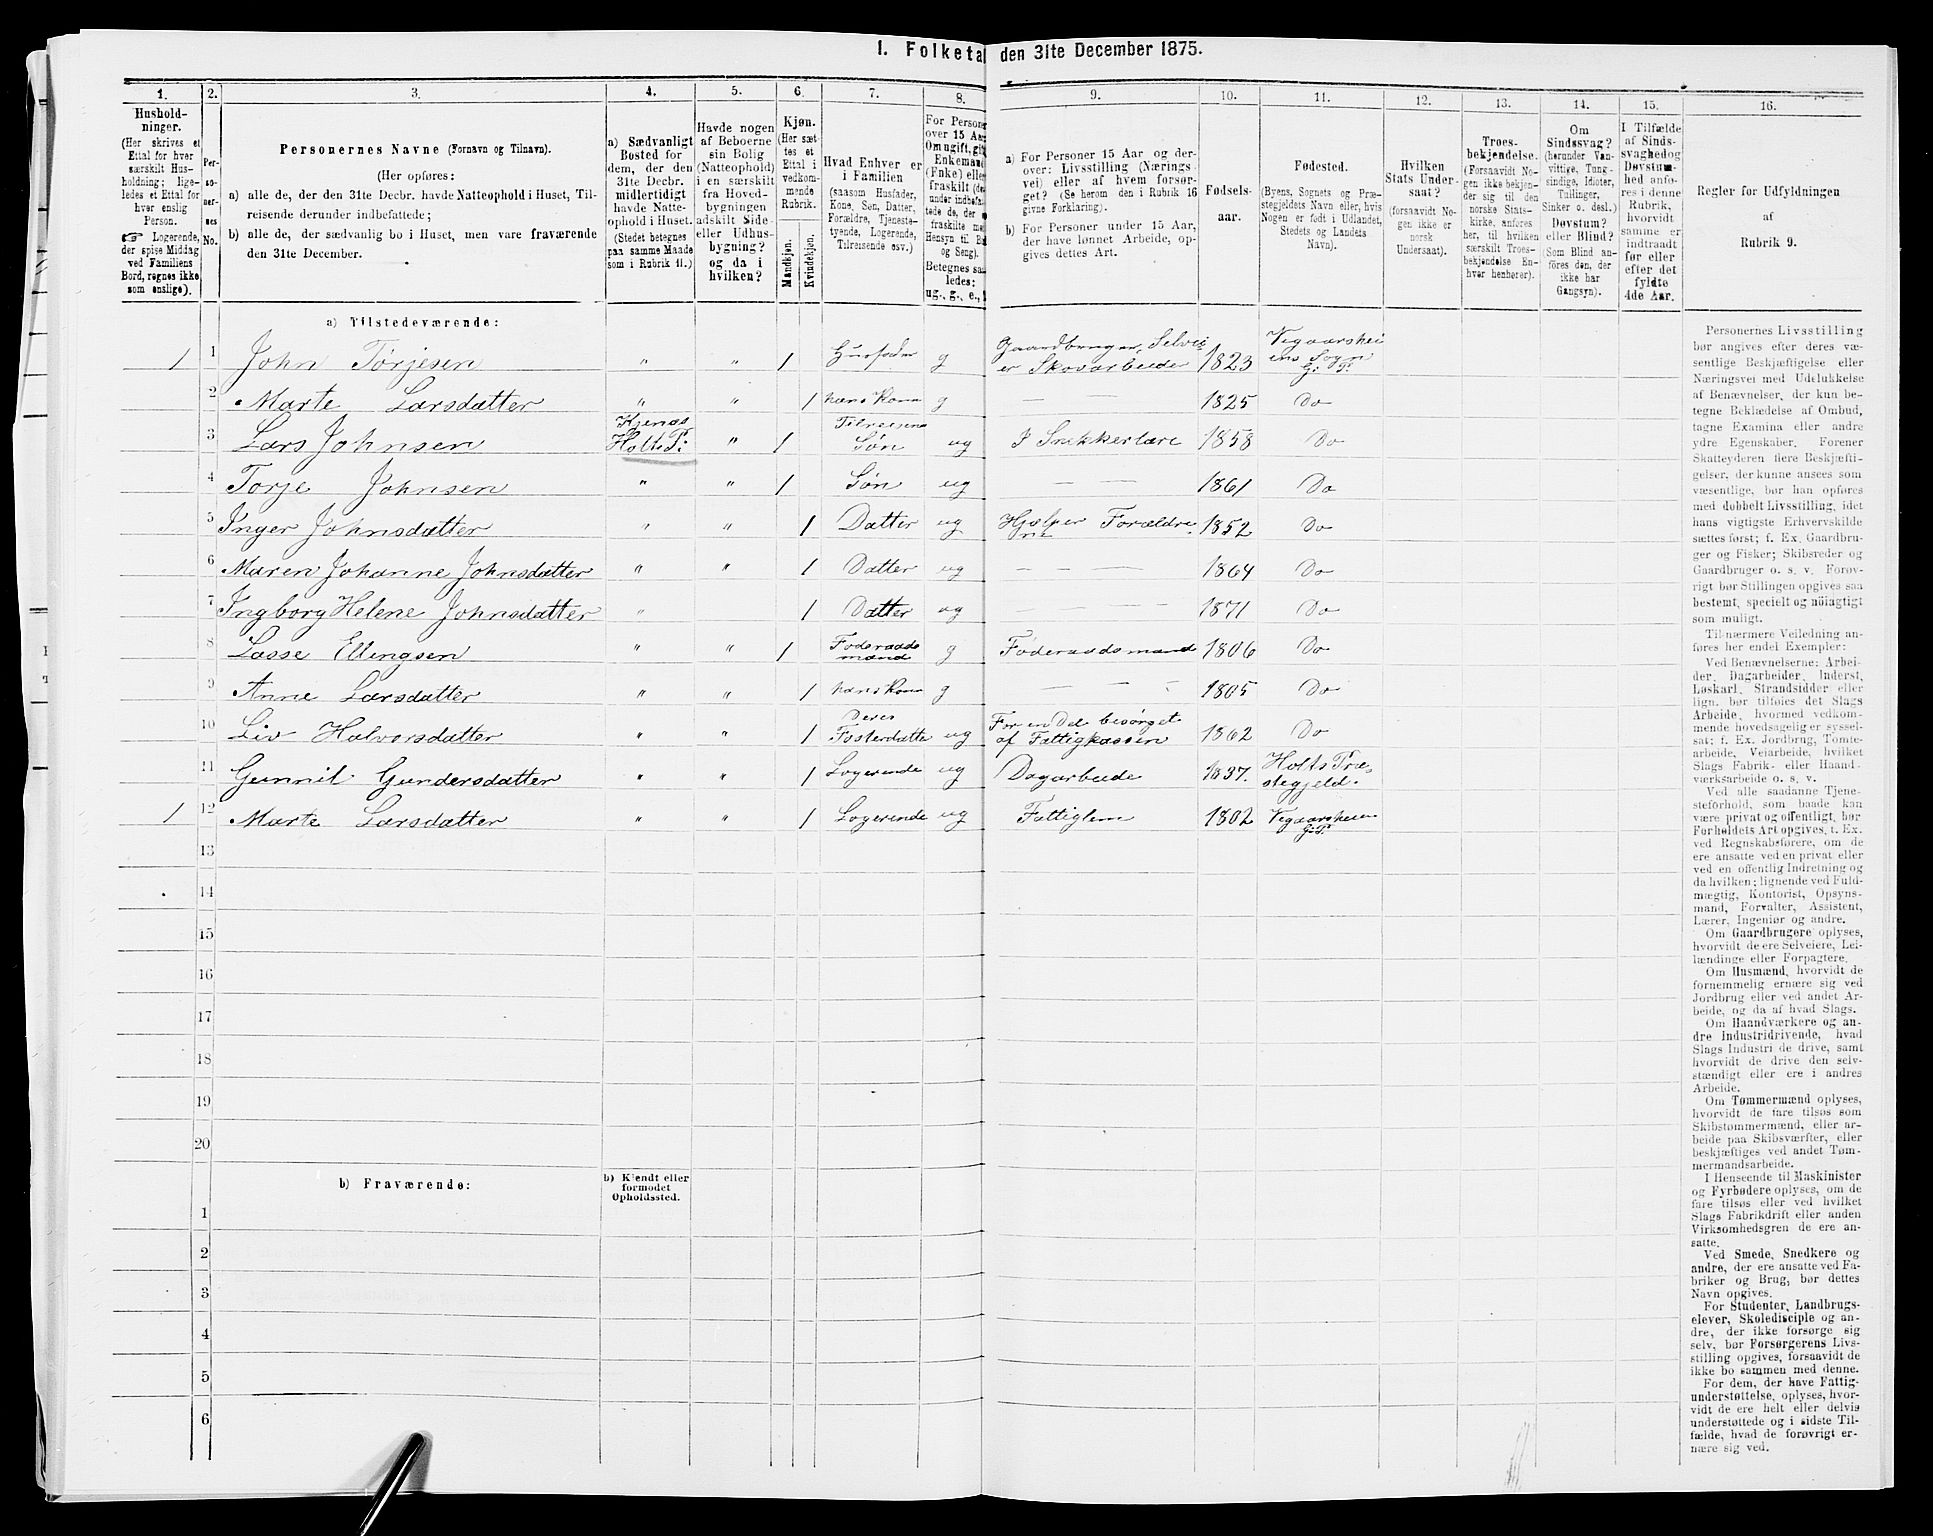 1. Folketal den 31te December 1875.
1.
Hushold-
ninger.
(Her skrives et
Ettal for hver
særskilt Hus-
holdning; lige-
ledes et Ettal for
hver enslig
Person.
☞ Logerende,
der spise Middag
ved Familiens
Bord, regnes ikke
som enslige).
2.
Per-
so-
ner-
nes
No.
3.
Personernes Navne (Fornavn og Tilnavn).
(Her opføres:
a) alle de, der den 31te Decbr. havde Natteophold i Huset, Til-
reisende derunder indbefattede;
b) alle de, der sædvanlig bo i Huset, men vare fraværende
den 31te December.
4.
a) Sædvanligt
Bosted for
dem, der den
31te Decbr.
midlertidigt
havde Natte-
ophold i Huset.
(Stedet betegnes
paa samme Maade
som i Rubrik 11.)
5.
Havde nogen
af Beboerne
sin Bolig
(Natteophold)
i en særskilt
fra Hoved-
bygningen
adskilt Side-
eller Udhus-
bygning?
og da i
hvilken?
6.
Kjøn.
(Her sæt-
tes et
Ettal i
vedkom-
mende
Rubrik.
Mandkjøn.
Kvindekjøn.
7.
Hvad Enhver er
i Familien
(saasom Husfader,
Kone, Søn, Datter,
Forældre, Tjeneste-
tyende, Logerende,
Tilreisende osv.)
8.
For Persone
over 15 Aar
Om ugift, gift
Enkemand
(Enke) elle
fraskilt (de
under indbefat-
tede de, der
fraskilte me
Hensyn til Bo
og Seng).
Betegnes saa
ledes:
ug., g., e.,
9.
a) For Personer 15 Aar og der-
over: Livsstilling (Nærings-
vei) eller af hvem forsør-
get? (Se herom den i Rubrik 16
givne Forklaring).
b) For Personer under 15 Aar,
der have lønnet Arbeide, op-
gives dettes Art.
10.
Fødsels-
aar.
11.
Fødested.
(Byens, Sognets og Præ-
stegjeldets Navn eller, hvis
Nogen er født i Udlandet,
Stedets og Landets
Navn).
12.
Hvilken
Stats Under-
saat?
(forsaavidt No-
gen ikke er
norsk
Undersaat).
13.
Troes-
bekjendelse.
(Forsaavidt No-
gen ikke bekjen-
der sig til den
norske Stats-
kirke, anføres
her, til hvilken
særskilt Troes-
bekjendelse En-
hver henhører).
14.
Om
Sindssvag?
(herunder Van-
vittige, Tung-
sindige, Idioter,
Tullinger,
Sinker o. desl.)
Døvstum?
eller Blind?
(Som Blind an-
føres den, der
ikke har
Gangsyn).
15.
I Tilfælde
af Sinds-
svaghed og
Døvstum-
hed anfø-
res i denne
Rubrik,
hvorvidt
samme er
indtraadt
før eller
efter det
fyldte
4de Aar.
16.
Regler for Udfyldningen
af
Rubrik 9.
a) Tilstedeværende:
1 1 John Torjesen " " 1 Husfader g Gaardbruger, Selvei-er Skovarbeider 1823 Vegaarshei-ens Sogn G. P.
2 Marte Larsdatter " " 1 hans Kone g — — 1825 Do
3 Lars Johnsen Holts P: " 1 Tilreisende Søn ug I Snekkerlære 1858 Do
4 Torje Johnsen " " 1 Søn ug — — 1861 Do
5 Inger Johnsdatter " " 1 Datter ug Hjælper Forældrene 1852 Do
6 Maren Johanne Johnsdatter " " 1 Datter ug — — — 1864 Do
7 Ingborg Helene Johnsdatter " 1 Datter ug — — — 1871 Do
8 Lasse Ellingsen " " 1 Føderaads mand g Føderaadsmand 1806 Do
9 Anne Larsdatter " " 1 hans Kone g — — 1805 Do
10 Liv Halvorsdatter " " 1 Deres Fosterdatte ug For en Del besørget af Fattigkassen 1862 Do
11 Gunnil Gundersdatter " " 1 Logerende ug Dagarbeide 1837. Holts Præ-stegjeld.
1 12 Marte Larsdatter " " 1 Logerende ug Fattiglem 1802 Vegaarsheien G. P.
13
14
15
16
17
18
19
20
b) Fraværende:
b) Kjendt eller
formodet
Opholdssted.
1
2
3
4
5
6
Personernes Livsstilling
bør angives efter deres væ-
sentlige Beskjæftigelse eller
Næringsvei med Udelukkelse
af Benævnelser, der kun be-
tegne Beklædelse af Ombud,
tagne Examina eller andre
ydre Egenskaber. Forener
Skatteyderen flere Beskjæfti-
gelser, der kunne ansees som
væsentlige, bør han opføres
med dobbelt Livsstilling, idet
hans vigtigste Erhvervskilde
sættes først; f. Ex. Gaardbru-
ger og Fisker; Skibsreder og
Gaardbruger o. s. v. Forøv-
rigt bør Stillingen opgives saa
bestemt, specielt og nøiagtigt
som muligt.
Til nærmere Veiledning an-
føres her endel Exempler:
Ved Benævnelserne: Arbei-
der, Dagarbeider, Inderst,
Løskarl, Strandsidder eller
lign. bør tilføies det Slags
Arbeide, hvormed vedkom-
mende hovedsagelig er syssel-
sat; f. Ex. Jordbrug, Tomte-
arbeide, Veiarbeide, hvilket
Slags Fabrik- eller Haand-
værksarbeide o. s. v.
Ved alle saadanne Tjene-
steforhold, som baade kan
være privat og offentligt, bør
Forholdets Art opgives, t. Ex.
ved Regnskabsførere, om de
ere ansatte ved en privat eller
ved en offentlig Indretning og
da hvilken; lignende ved Fuld-
mægtig, Kontorist, Opsyns-
mand, Forvalter, Assistent,
Lærer, Ingeniør og andre.
Om Gaardbrugere oplyses,
hvorvidt de ere Selveiere, Lei-
lændinge eller Forpagtere.
Om Husmænd, hvorvidt de
fornemmelig ernære sig ved
Jordbrug eller ved andet Ar-
beide, og da af hvad Slags.
Om Haandværkere og an-
dre industridrivende, hvad
Slags Industri de drive, samt
hvorvidt de drive den selv-
stændigt eller ere i andres
Arbeide.
Om Tømmermænd oplyses,
hvorvidt de fare tilsøs som
Skibstømmermænd, eller ar-
beide paa Skibsværfter, eller
beskjæftiges ved andet Tøm-
mermandsarbeide.
I Henseende til Maskinister
og Fyrbødere oplyses, om de
fare tilsøs eller ved hvilket
Slags Fabrikdrift eller anden
Virksomhedsgren de ere an-
satte.
Ved Smede, Snedkere og
andre, der ere ansatte ved Fa-
briker og Brug, bør dettes
Navn opgives.
For Studenter, Landbrugs-
elever, Skoledisciple og an-
dre, der ikke forsørge sig
selv, bør Forsørgerens Livs-
stilling opgives, forsaavidt de
ikke bo sammen med denne.
For dem, der have Fattig-
understøttelse, oplyses, hvor-
vidt de ere helt eller delvis
understøttede og i sidste Til-
fælde, hvad de forøvrigt er-
nære sig ved.